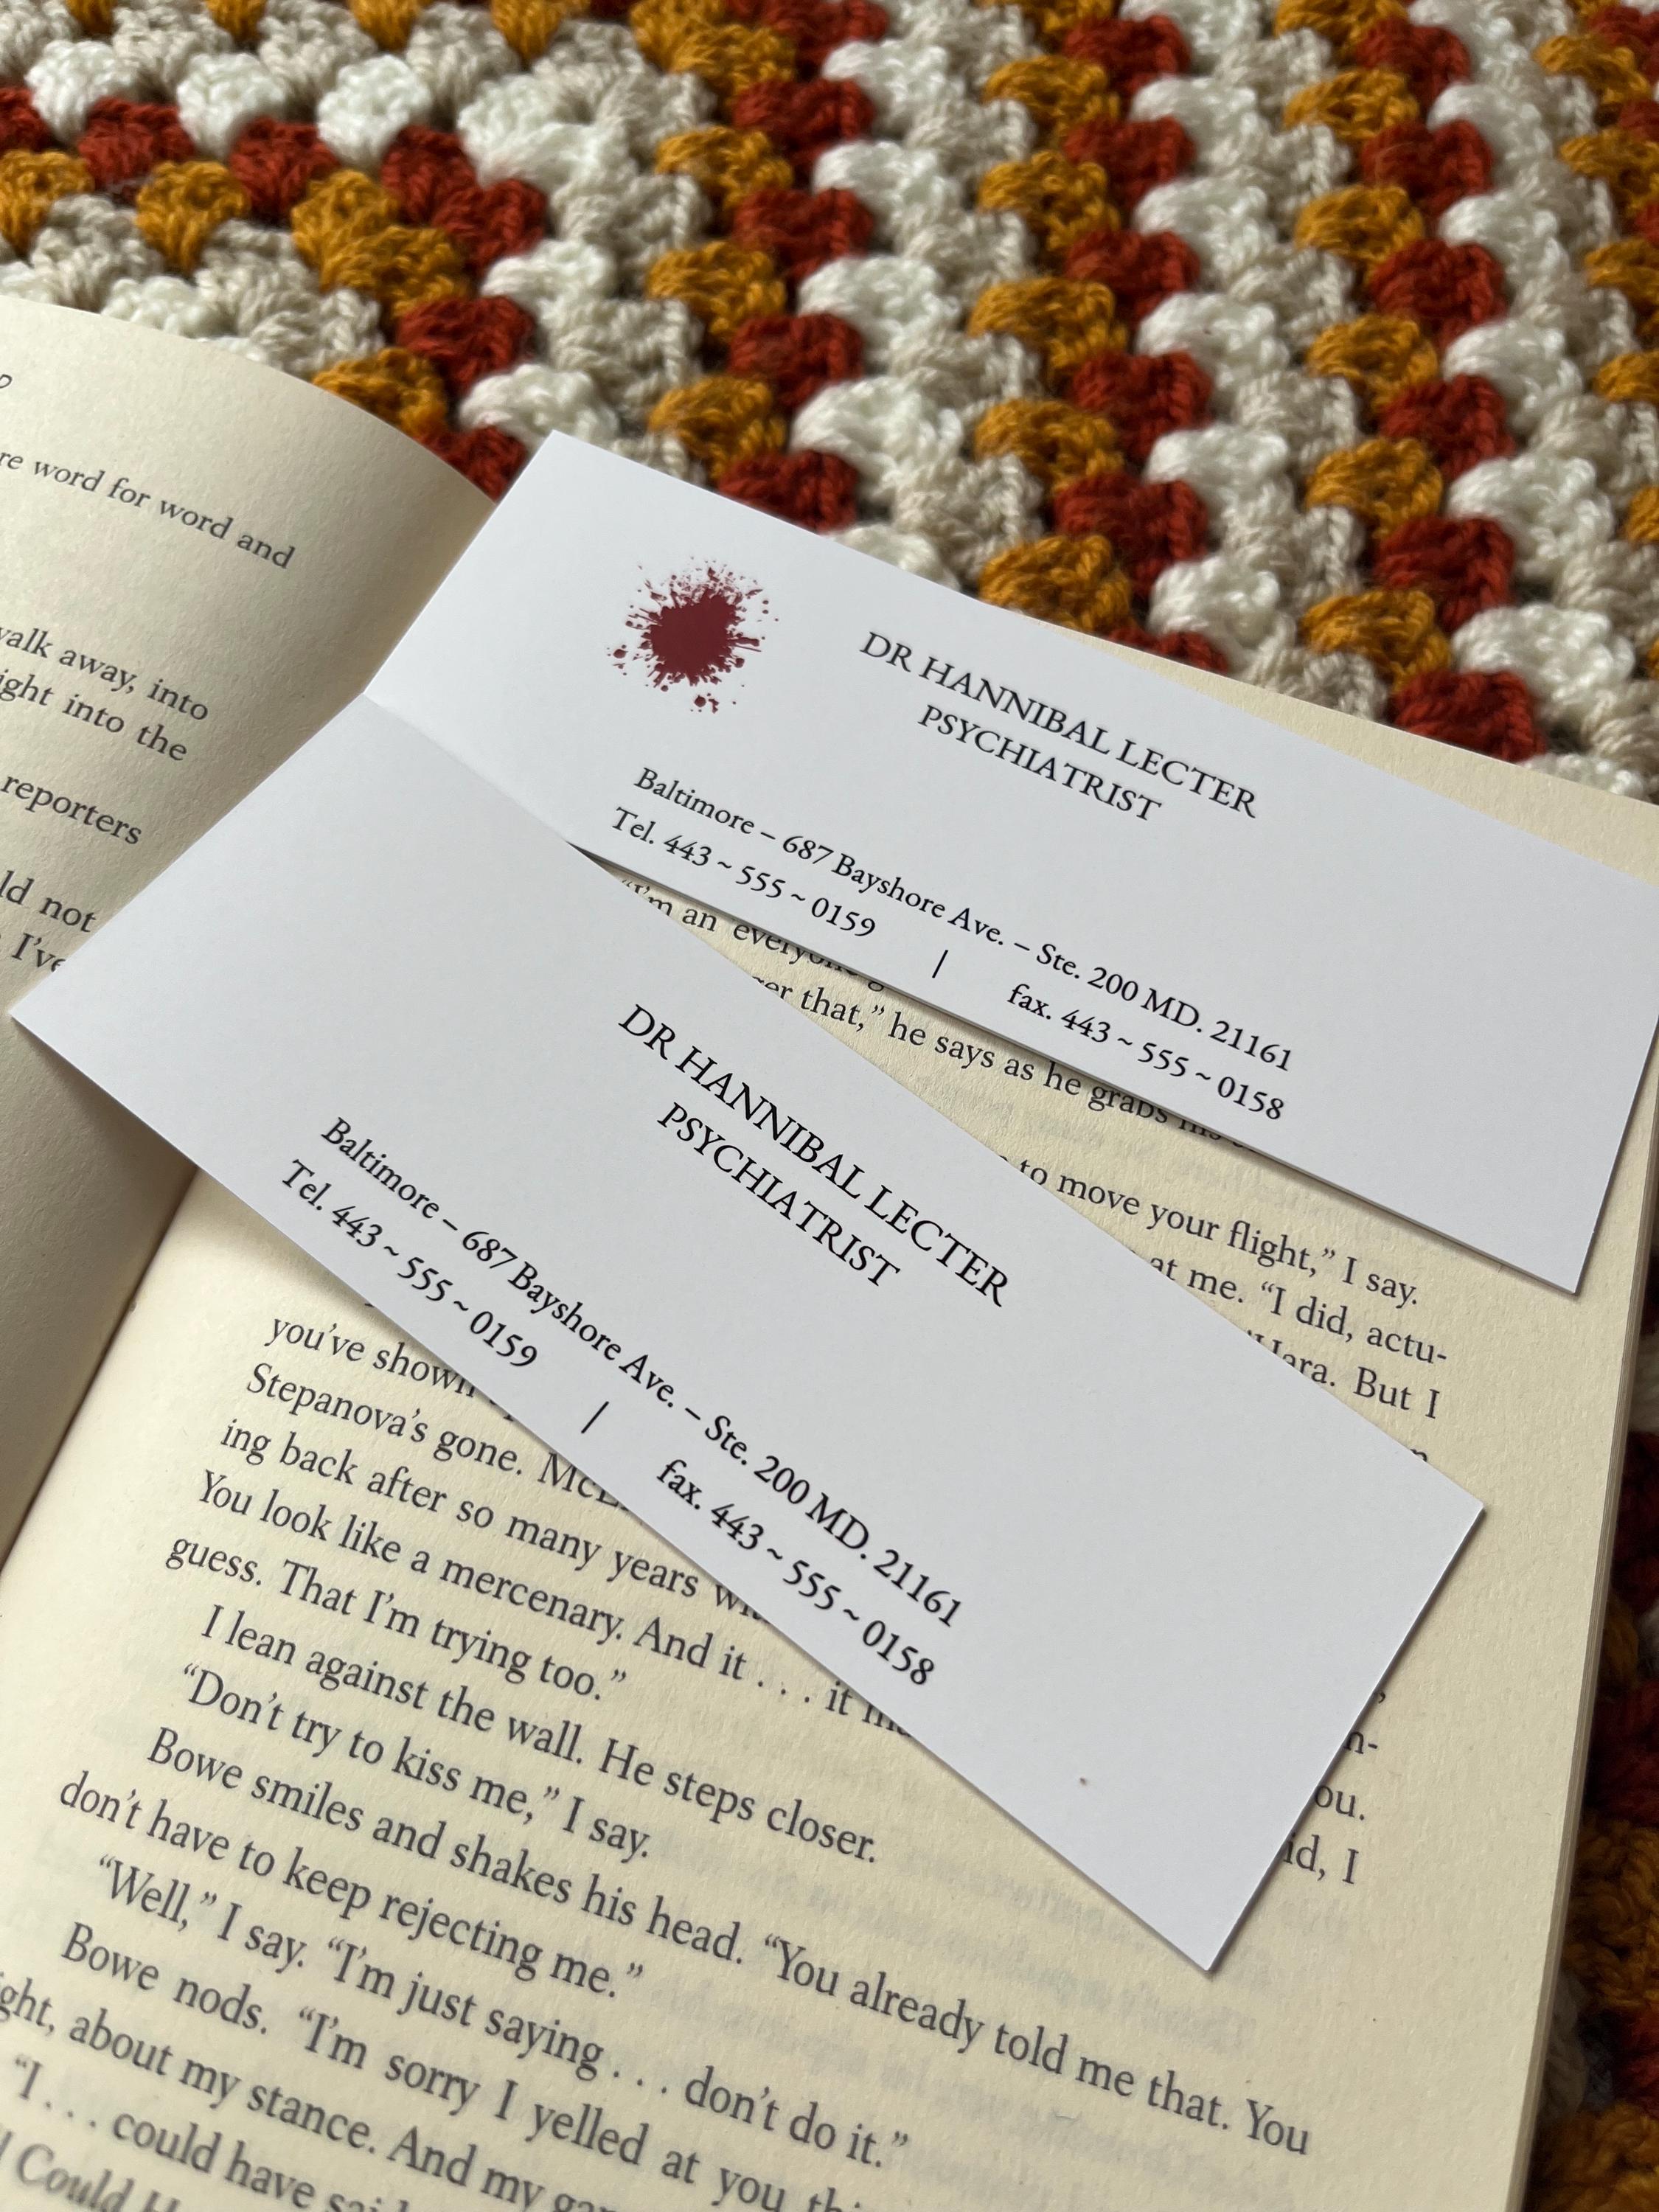 re word for word and
walk away, into
ight into the
reporters
ld not
I've
DR HANNIBAL LECTER
PSYCHIATRIST
Baltimore – 687 Bayshore Ave. – Ste. 200 MD. 21161
Tel. 443 ~ 555 ~ 0159 | fax. 443 ~ 555 ~ 0158
DR HANNIBAL LECTER
PSYCHIATRIST
Baltimore – 687 Bayshore Ave. – Ste. 200 MD. 21161
Tel. 443 ~ 555 ~ 0159 | fax. 443 ~ 555 ~ 0158
"I'm an
that," he says as he grabs
to move your flight," I say.
at me. "I did, actu-
But I
you've shown
Stepanova's gone.
ing back after so many years
You look like a mercenary. And it . . . it
guess. That I'm trying too."
I lean against the wall. He steps closer.
"Don't try to kiss me," I say.
Bowe smiles and shakes his head. "You already told me that. You
don't have to keep rejecting me."
"Well," I say. "I'm just saying . . . don't do it."
Bowe nods. "I'm sorry I yelled at you
ght, about my stance. And my
"I . . . could have
Could